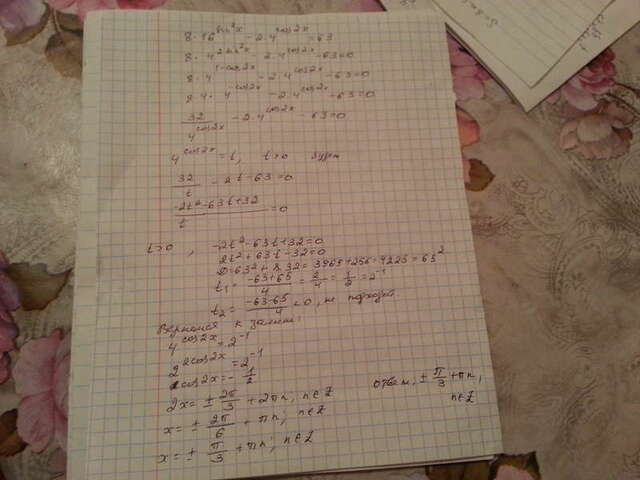 8 · 16^{sin²x} - 2 · 4^{cos2x} = 63
8 · 4^{2sin²x} - 2 · 4^{cos2x} - 63 = 0
8 · 4^{1-cos2x} - 2 · 4^{cos2x} - 63 = 0
8 · 4 · 4^{-cos2x} - 2 · 4^{cos2x} - 63 = 0
32/4^{cos2x} - 2 · 4^{cos2x} - 63 = 0
4^{cos2x} = t, t > 0
32/t - 2t - 63 = 0
(-2t² - 63t + 32)/t = 0
t > 0, -2t² - 63t + 32 = 0
2t² + 63t - 32 = 0
D = 63² + 8 · 32 = 3969 + 256 = 4225 = 65²
t₁ = (-63+65)/4 = 2/4 = 1/2 = 2⁻¹
t₂ = (-63-65)/4 < 0, не подходит
Вернемся к замене:
4^{cos2x} = 2⁻¹
2^{2cos2x} = 2⁻¹
cos2x = -1/2
2x = ± 2π/3 + 2πn, n∈Z
x = ± 2π/6 + πn; n∈Z
x = ± π/3 + πn; n∈Z
ответ: ± π/3 + πn,
n∈Z